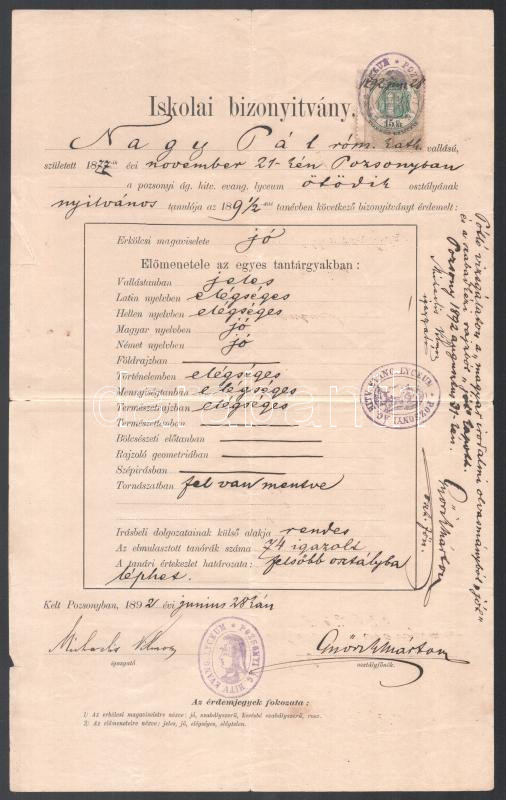 Iskolai bizonyitvány.
15 kr
Nagy Pál róm. kath. vallású,
született 1877-ik évi november 21-kén Pozsonyban
a pozsonyi ág. hitv. evang. lyceum ötödik osztályának
nyilvános tanulója az 1891/2-iki tanévben következő bizonyitványt érdemelt:
Erkölcsi magaviselete jó
Előmenetele az egyes tantárgyakban:
Vallástanban jeles
Latin nyelvben elégséges
Hellen nyelvben elégséges
Magyar nyelvben jó
Német nyelvben jó
Földrajzban
Történelemben elégséges
Mennyiségtanban elégséges
Természetrajzban elégséges
Természettanban
Bölcsészeti előtanban
Rajzoló geometriában
Szépirásban
Tornászatban fel van mentve
Irásbeli dolgozatainak külső alakja rendes
Az elmulasztott tanórák száma 74 igazolt
A tanári értekezlet határozata: felsőbb osztályba
léphet.
Kelt Pozsonyban, 1892 évi junius 28-kán
Michaelis Vilmos
igazgató
Győrik Márton
osztályfőnök.
Az érdemjegyek fokozata:
1) Az erkölcsi magaviseletre nézve: jó, szabályszerű, kevésbé szabályszerű, rosz.
2) Az előmenetelre nézve: jeles, jó, elégséges, elégtelen.
Pótló vizsgálaton a „magyar irodalmi olvasmányból" „jó"
és a szabadkézi rajzból „jó"-t kapott.
Pozsony 1892 augusztus 31-kén.
Michaelis Vilmos
igazgató
Győrik Márton
oszt. főn.